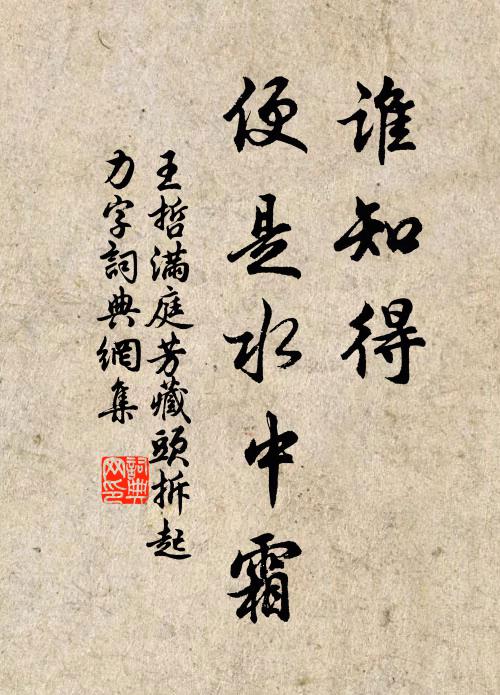 谁知得
便是水中霜
王哲满庭芳藏頭拆起
力字詞典網集
詞典
网印